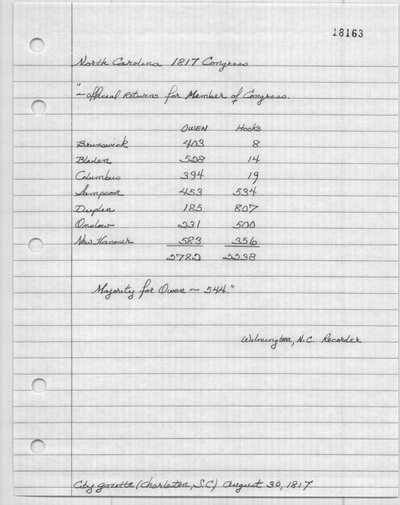 18163
North Carolina 1817 Congress
"—Official Returns for Member of Congress.
OWEN Hooks
Brunswick 403 8
Bladen 508 14
Columbus 394 19
Sampson 453 534
Duplin 185 807
Onslow 231 500
New Hanover 583 356
2782 2238
Majority for Owen — 544."
Wilmington, N.C. Recorder
City gazette (Charleston, SC) August 30, 1817